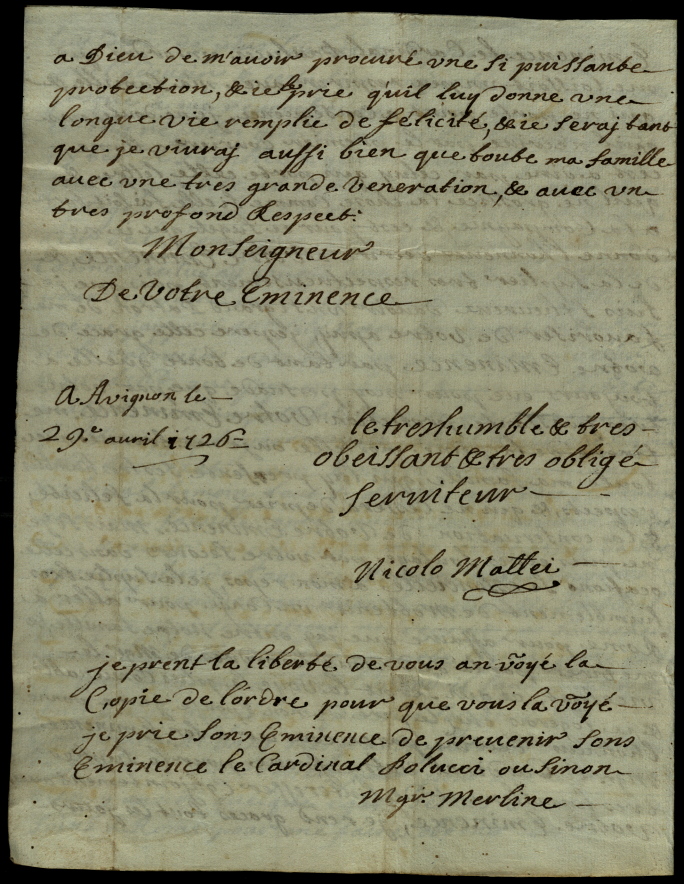 a Dieu de m'avoir procuré vne si puissante
protection, & ie le prie qu'il luy donne vne
longue vie remplie de félicité, & ie seraj tant
que je viuraj aussi bien que toute ma famille
auec vne tres grande veneration, & auec vn
tres profond Respect:
Monseigneur
De Votre Eminence
A Avignon le
29.e avril 1726
le tres humble & tres
obeissant & tres obligé
seruiteur
Nicolo Mattei
je prent la liberté de vous anvoyé la
Copie de lórdre pour que vous la voyé
je prie sons Eminence de preuenir sons
Eminence le Cardinal Polucci ou sinon
Mgr. Merline